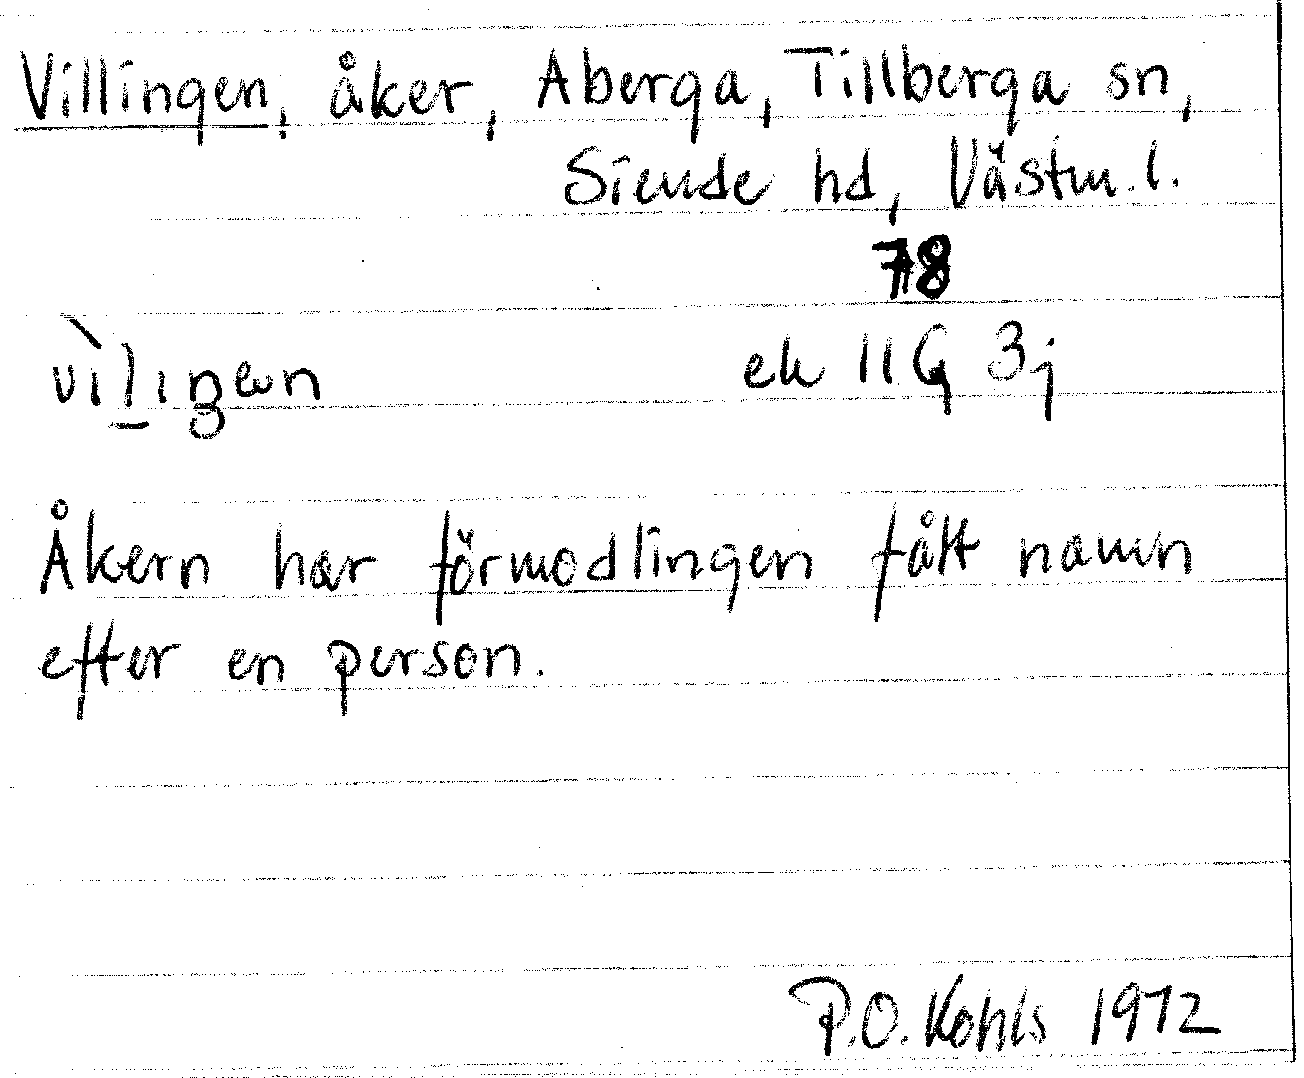 Villingen, åker, Aberga, Tillberga sn,
Siende hd, Västm. l.
78
vìl̠ıŋən ek 11G 3j
Åkern har förmodlingen fått namn
efter en person.
P.O. Kohls 1972